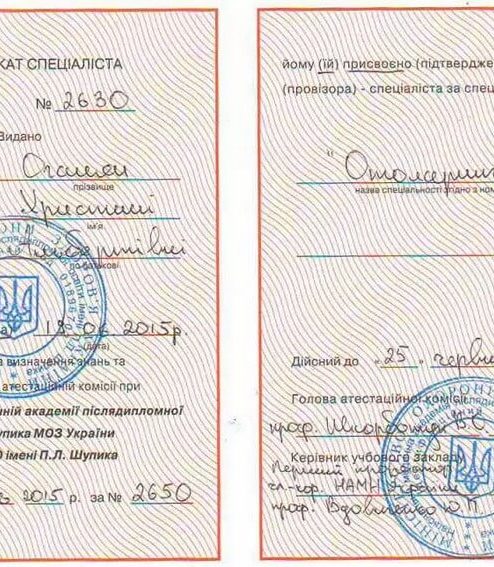 КАТ СПЕЦІАЛІСТА
№ 2630
Видано
Оганян
прізвище
Христині
ім'я
по батькові
18 06 2015р.
(дата)
визначення знань та
атестаційній комісії при
ній академії післядипломної
упика МОЗ України
О імені П.Л. Шупика
2015 р. за № 2650
йому (їй) присвоєно (підтвердже
(провізора) - спеціаліста за спец
"Отоларин
назва спеціальності згідно з ном
Дійсний до "25" червн
Голова атестаційної комісії
проф.
Керівник учбового закладу
Перший проректор
чл-кор. НАМН України
проф. Вдовиченко Ю.П.